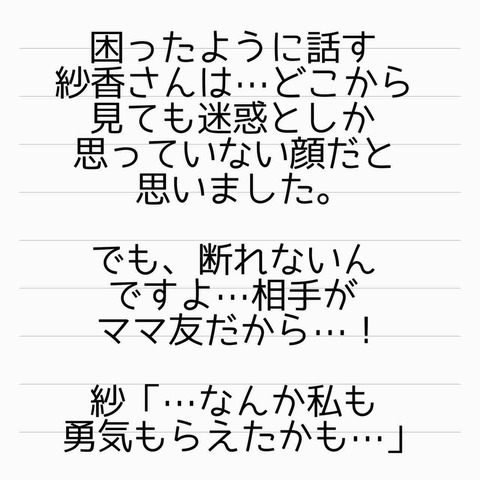 困ったように話す
紗香さんは…どこから
見ても迷惑としか
思っていない顔だと
思いました。
でも、断れないん
ですよ…相手が
ママ友だから…！
紗「…なんか私も
勇気もらえたかも…」